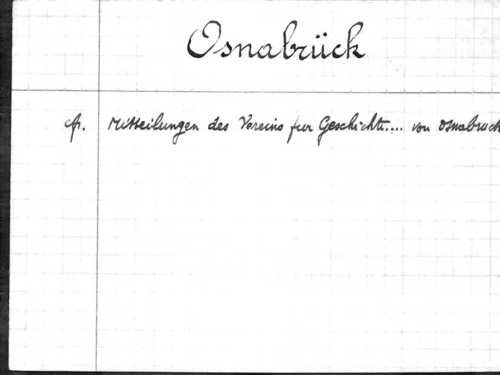 Osnabrück
cfr. Mitteilungen des Vereins fur Geschichte.... von Osnabruck